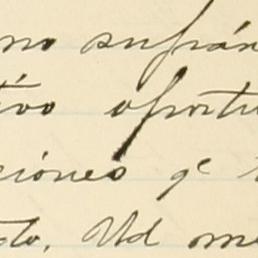 no sufrán
tivo oportu
ciones qe
to. Ud me